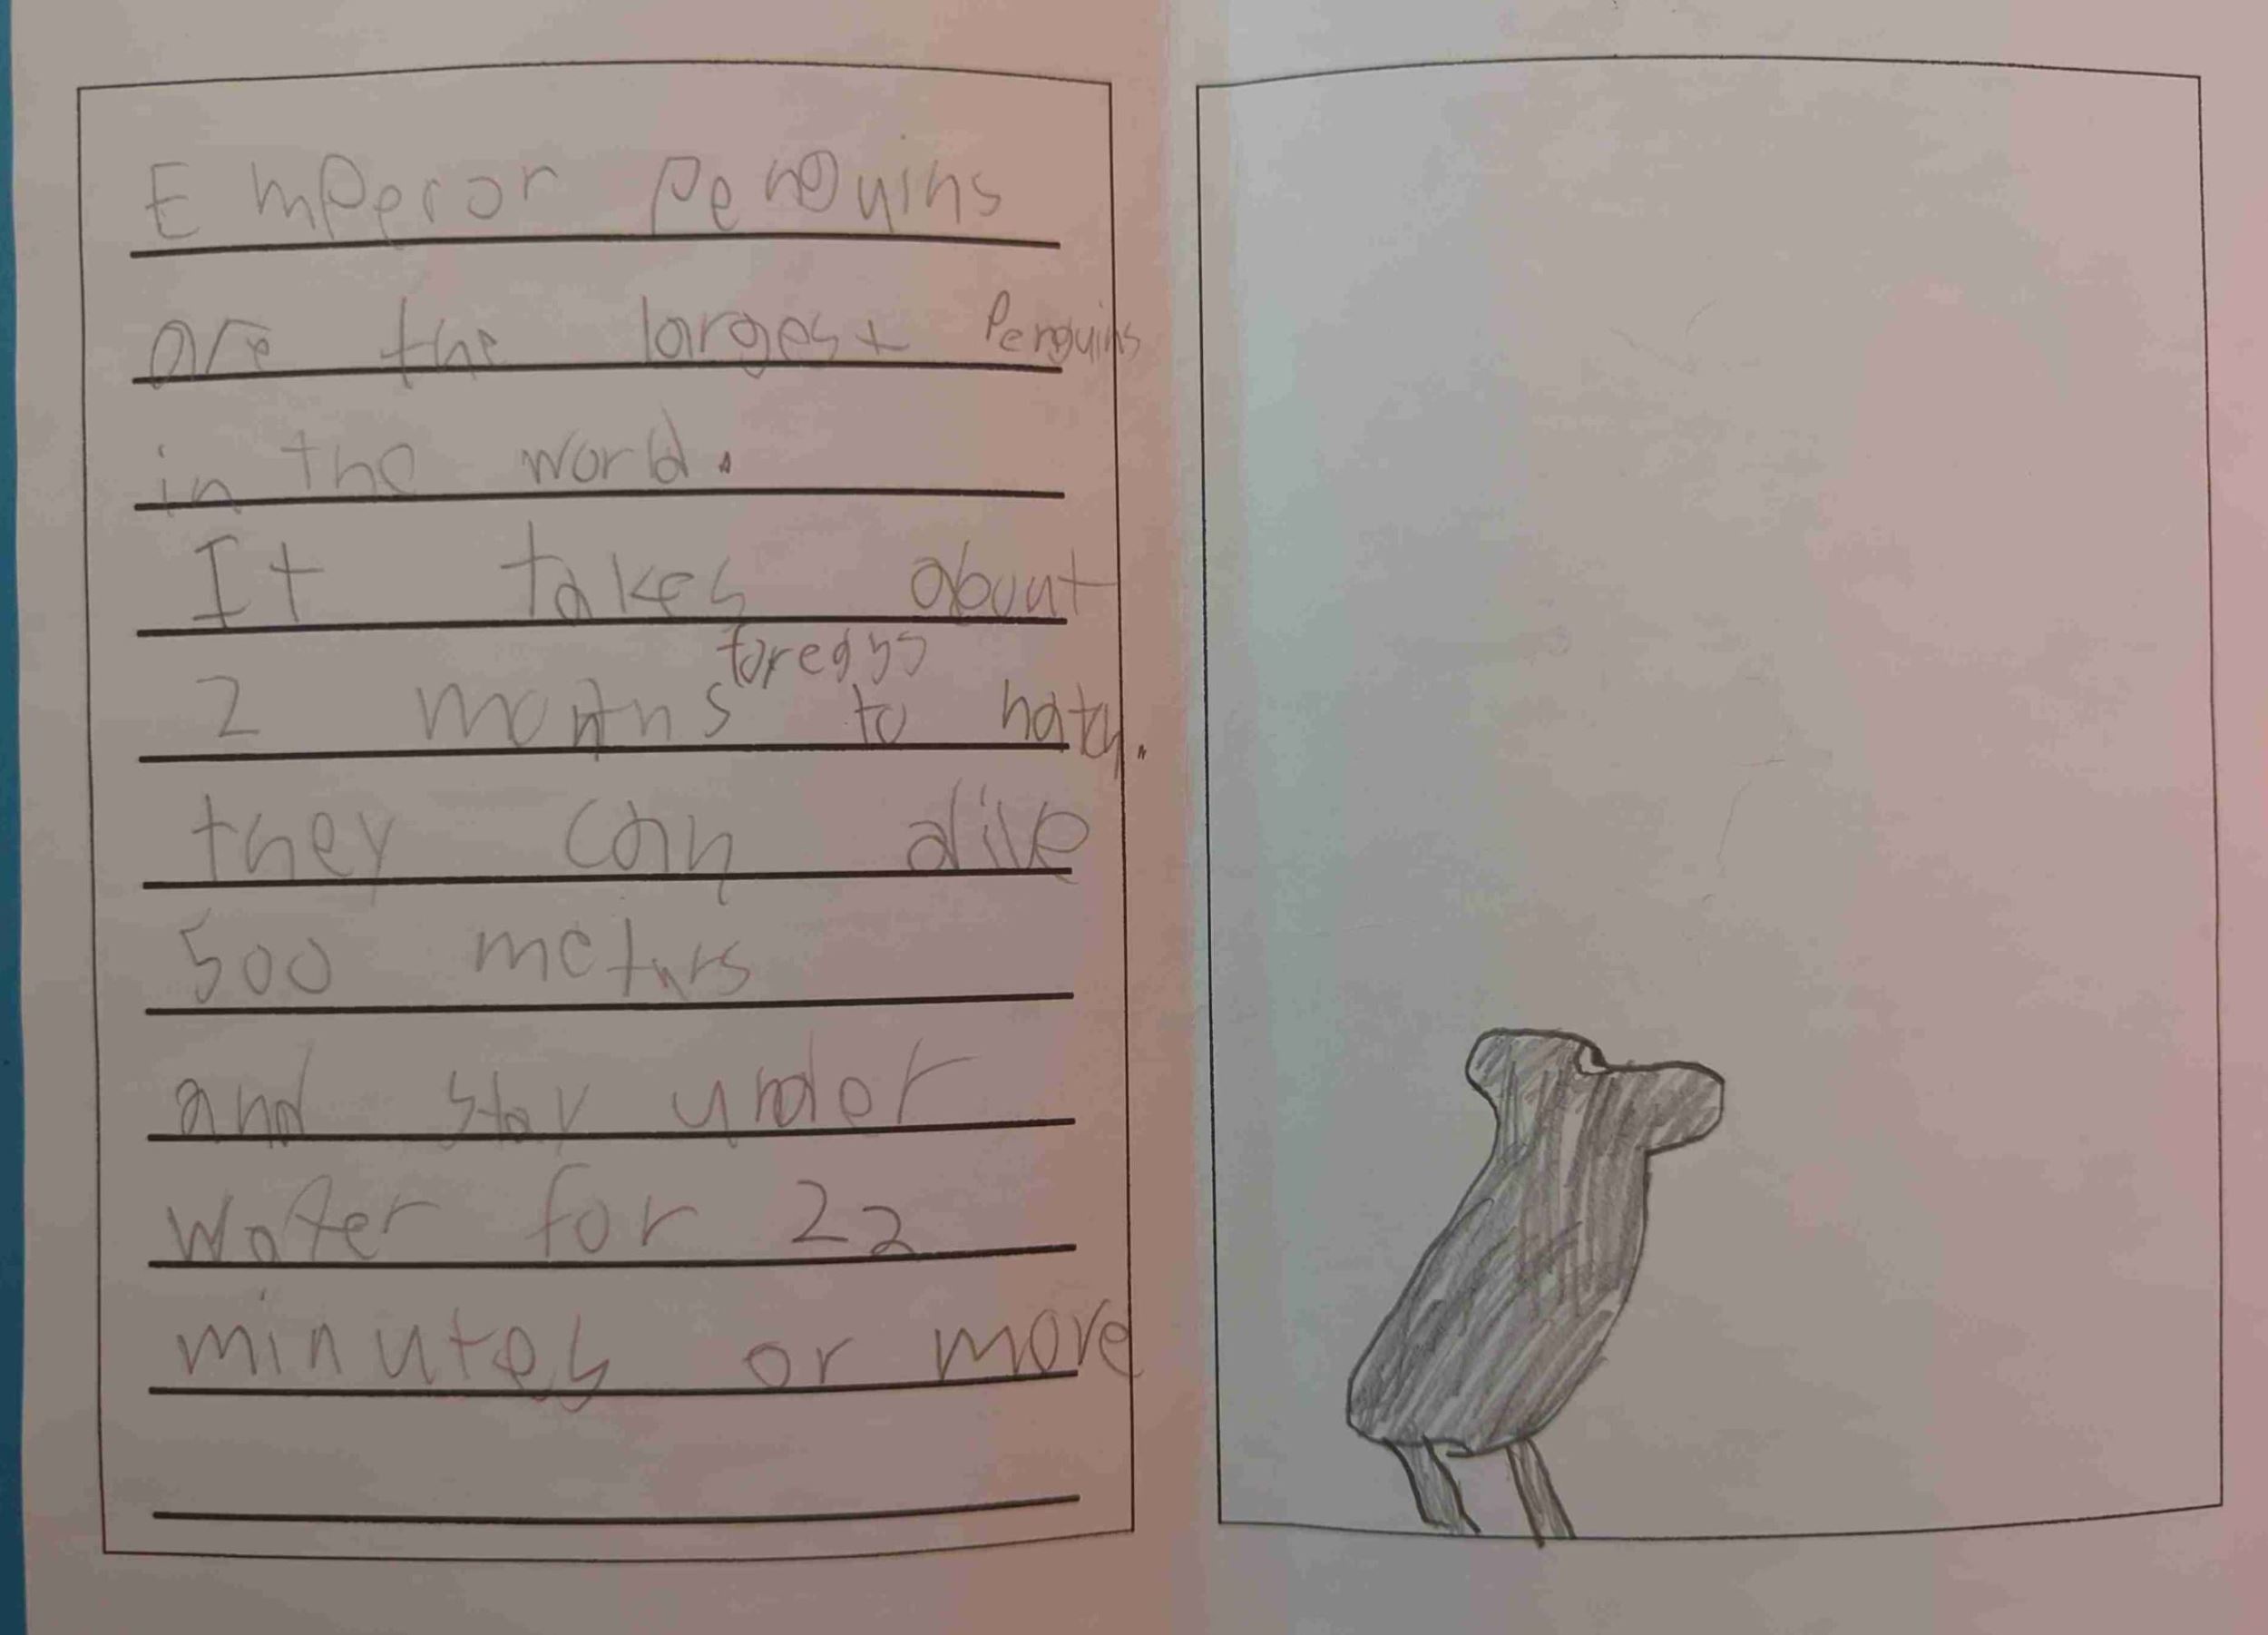 Emperor Penguins
are the largest Penguins
in the world.
It takes about
for eggs
2 months to hatch.
they can dive
500 meturs
and stay under
water for 22
minutes or more